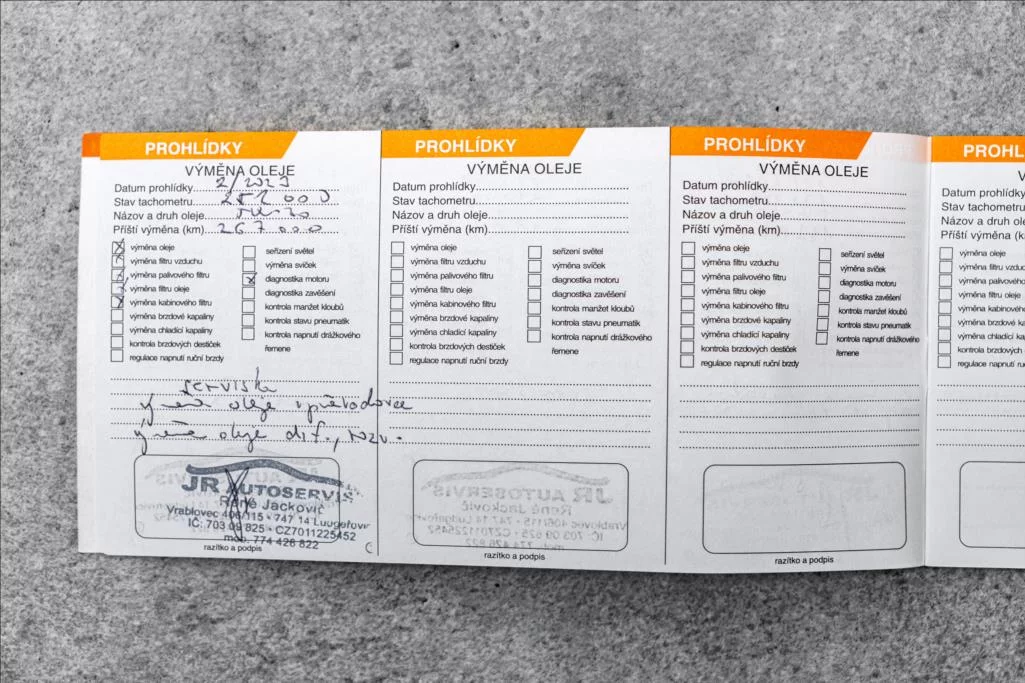 PROHLÍDKY
VÝMĚNA OLEJE
Datum prohlídky 2/2023
Stav tachometru 252 000
Názov a druh oleje 5W-30
Příští výměna (km) 267 000
výměna oleje
výměna filtru vzduchu
výměna palivového filtru
výměna filtru oleje
výměna kabinového filtru
výměna brzdové kapaliny
výměna chladící kapaliny
kontrola brzdových destiček
regulace napnutí ruční brzdy
seřízení světel
výměna svíček
diagnostika motoru
diagnostika zavěšení
kontrola manžet kloubů
kontrola stavu pneumatik
kontrola napnutí drážkového
řemene
oleje v převodovce
oleje dif.,
JR AUTOSERVIS
René Jackovič
Vrablovec 406/115 · 747 14 Ludgeřovi
IČ: 703 09 825 · CZ7011225452
mob. 774 426 822
razítko a podpis
PROHLÍDKY
VÝMĚNA OLEJE
Datum prohlídky
Stav tachometru
Názov a druh oleje
Příští výměna (km)
výměna oleje
výměna filtru vzduchu
výměna palivového filtru
výměna filtru oleje
výměna kabinového filtru
výměna brzdové kapaliny
výměna chladící kapaliny
kontrola brzdových destiček
regulace napnutí ruční brzdy
seřízení světel
výměna svíček
diagnostika motoru
diagnostika zavěšení
kontrola manžet kloubů
kontrola stavu pneumatik
kontrola napnutí drážkového
řemene
razítko a podpis
PROHLÍDKY
VÝMĚNA OLEJE
Datum prohlídky
Stav tachometru
Názov a druh oleje
Příští výměna (km)
výměna oleje
výměna filtru vzduchu
výměna palivového filtru
výměna filtru oleje
výměna kabinového filtru
výměna brzdové kapaliny
výměna chladící kapaliny
kontrola brzdových destiček
regulace napnutí ruční brzdy
seřízení světel
výměna svíček
diagnostika motoru
diagnostika zavěšení
kontrola manžet kloubů
kontrola stavu pneumatik
kontrola napnutí drážkového
řemene
razítko a podpis
PROHL
V
Datum prohlídky
Stav tachometru
Názov a druh ole
Příští výměna (k
výměna oleje
výměna filtru vzduch
výměna palivového
výměna filtru oleje
výměna kabinového
výměna brzdové k
výměna chladící k
kontrola brzdových
regulace napnutí